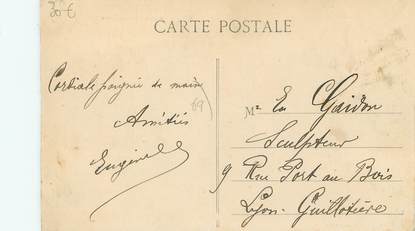 30 €
CARTE POSTALE
Cordiale poignée de main
69
Amitiés
Eugène
M. En Gaidon
Sculpteur
9 Rue Port au Bois
Lyon-Guillotière